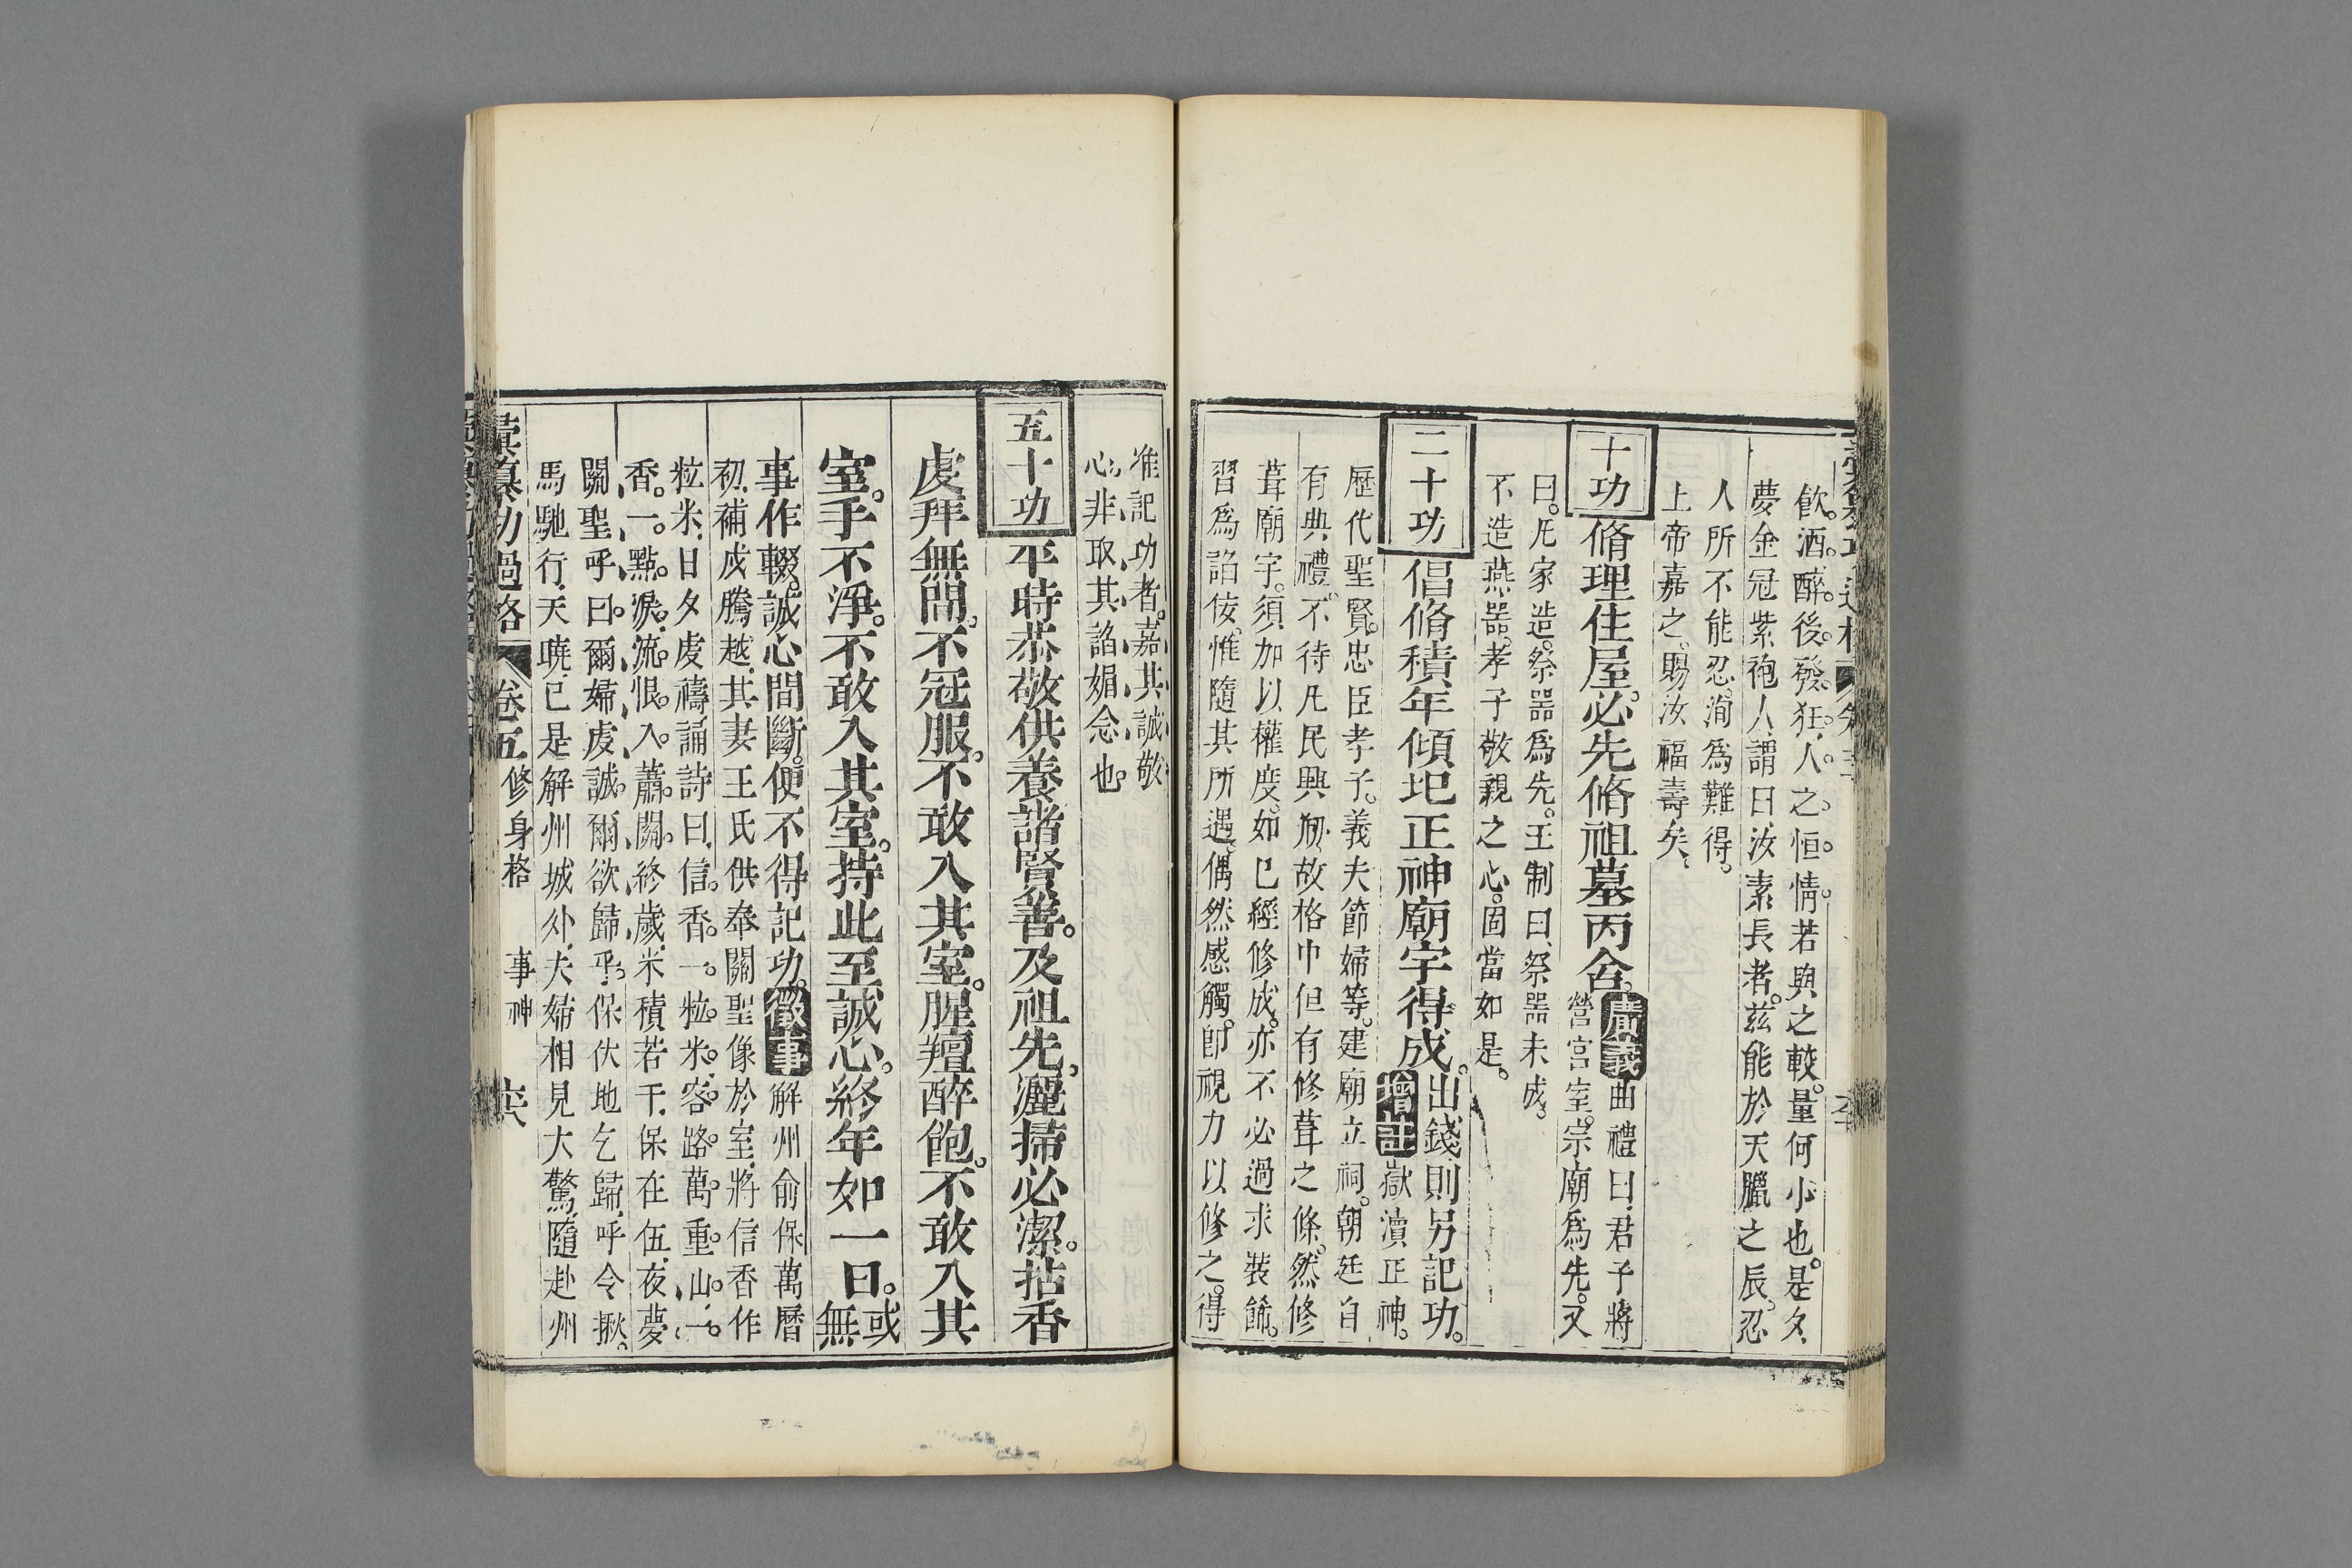 飲酒。醉後發狂。人之恒情。若與之較量。何小也。是夕
夢金冠紫袍人謂曰。汝素長者。茲能於天臘之辰。忍
人所不能忍。洵爲難得。
上帝嘉之。賜汝福壽矣。
十功
脩理住屋。必先脩祖墓丙舍。
廣義
曲禮曰。君子將
營宮室。宗廟爲先。又
曰。凡家造。祭器爲先。王制曰。祭器未成。
不造燕器。孝子敬親之心。固當如是。
二十功
倡脩積年傾圯正神廟宇得成。
出錢則另記功。
增註
嶽瀆正神。
歷代聖賢。忠臣孝子。義夫節婦等。建廟立祠。朝廷自
有典禮。不待凡民興剏。故格中但有修葺之條。然修
葺廟宇。須加以權度。如已經修成。亦不必過求裝餙。
習爲諂侫。惟隨其所遇。偶然感觸。卽視力以修之。得
准記功者。嘉其誠敬
心。非取其諂媚念也。
五十功
平時恭敬供養諸賢善。及祖先。灑掃必潔。拈香
虔拜無間。不冠服。不敢入其室。腥羶醉飽。不敢入其
室。手不淨。不敢入其室。持此至誠心。終年如一日。
或
無
事作輟。誠心間斷。便不得記功。
徵事
解州俞保。萬曆
初。補戍騰越。其妻王氏供奉關聖像於室。將信香作
粒米。日夕虔禱。誦詩曰。信香一粒米。客路萬重山。一
香。一點淚。流恨入蕭關。終歲。米積若干。保在伍。夜夢
關聖呼曰。爾婦虔誠。爾欲歸乎。保伏地乞歸。呼令揪
馬馳行。天曉。已是解州城外。夫婦相見大驚。隨赴州
彚纂功過格
卷五
修身格
事神